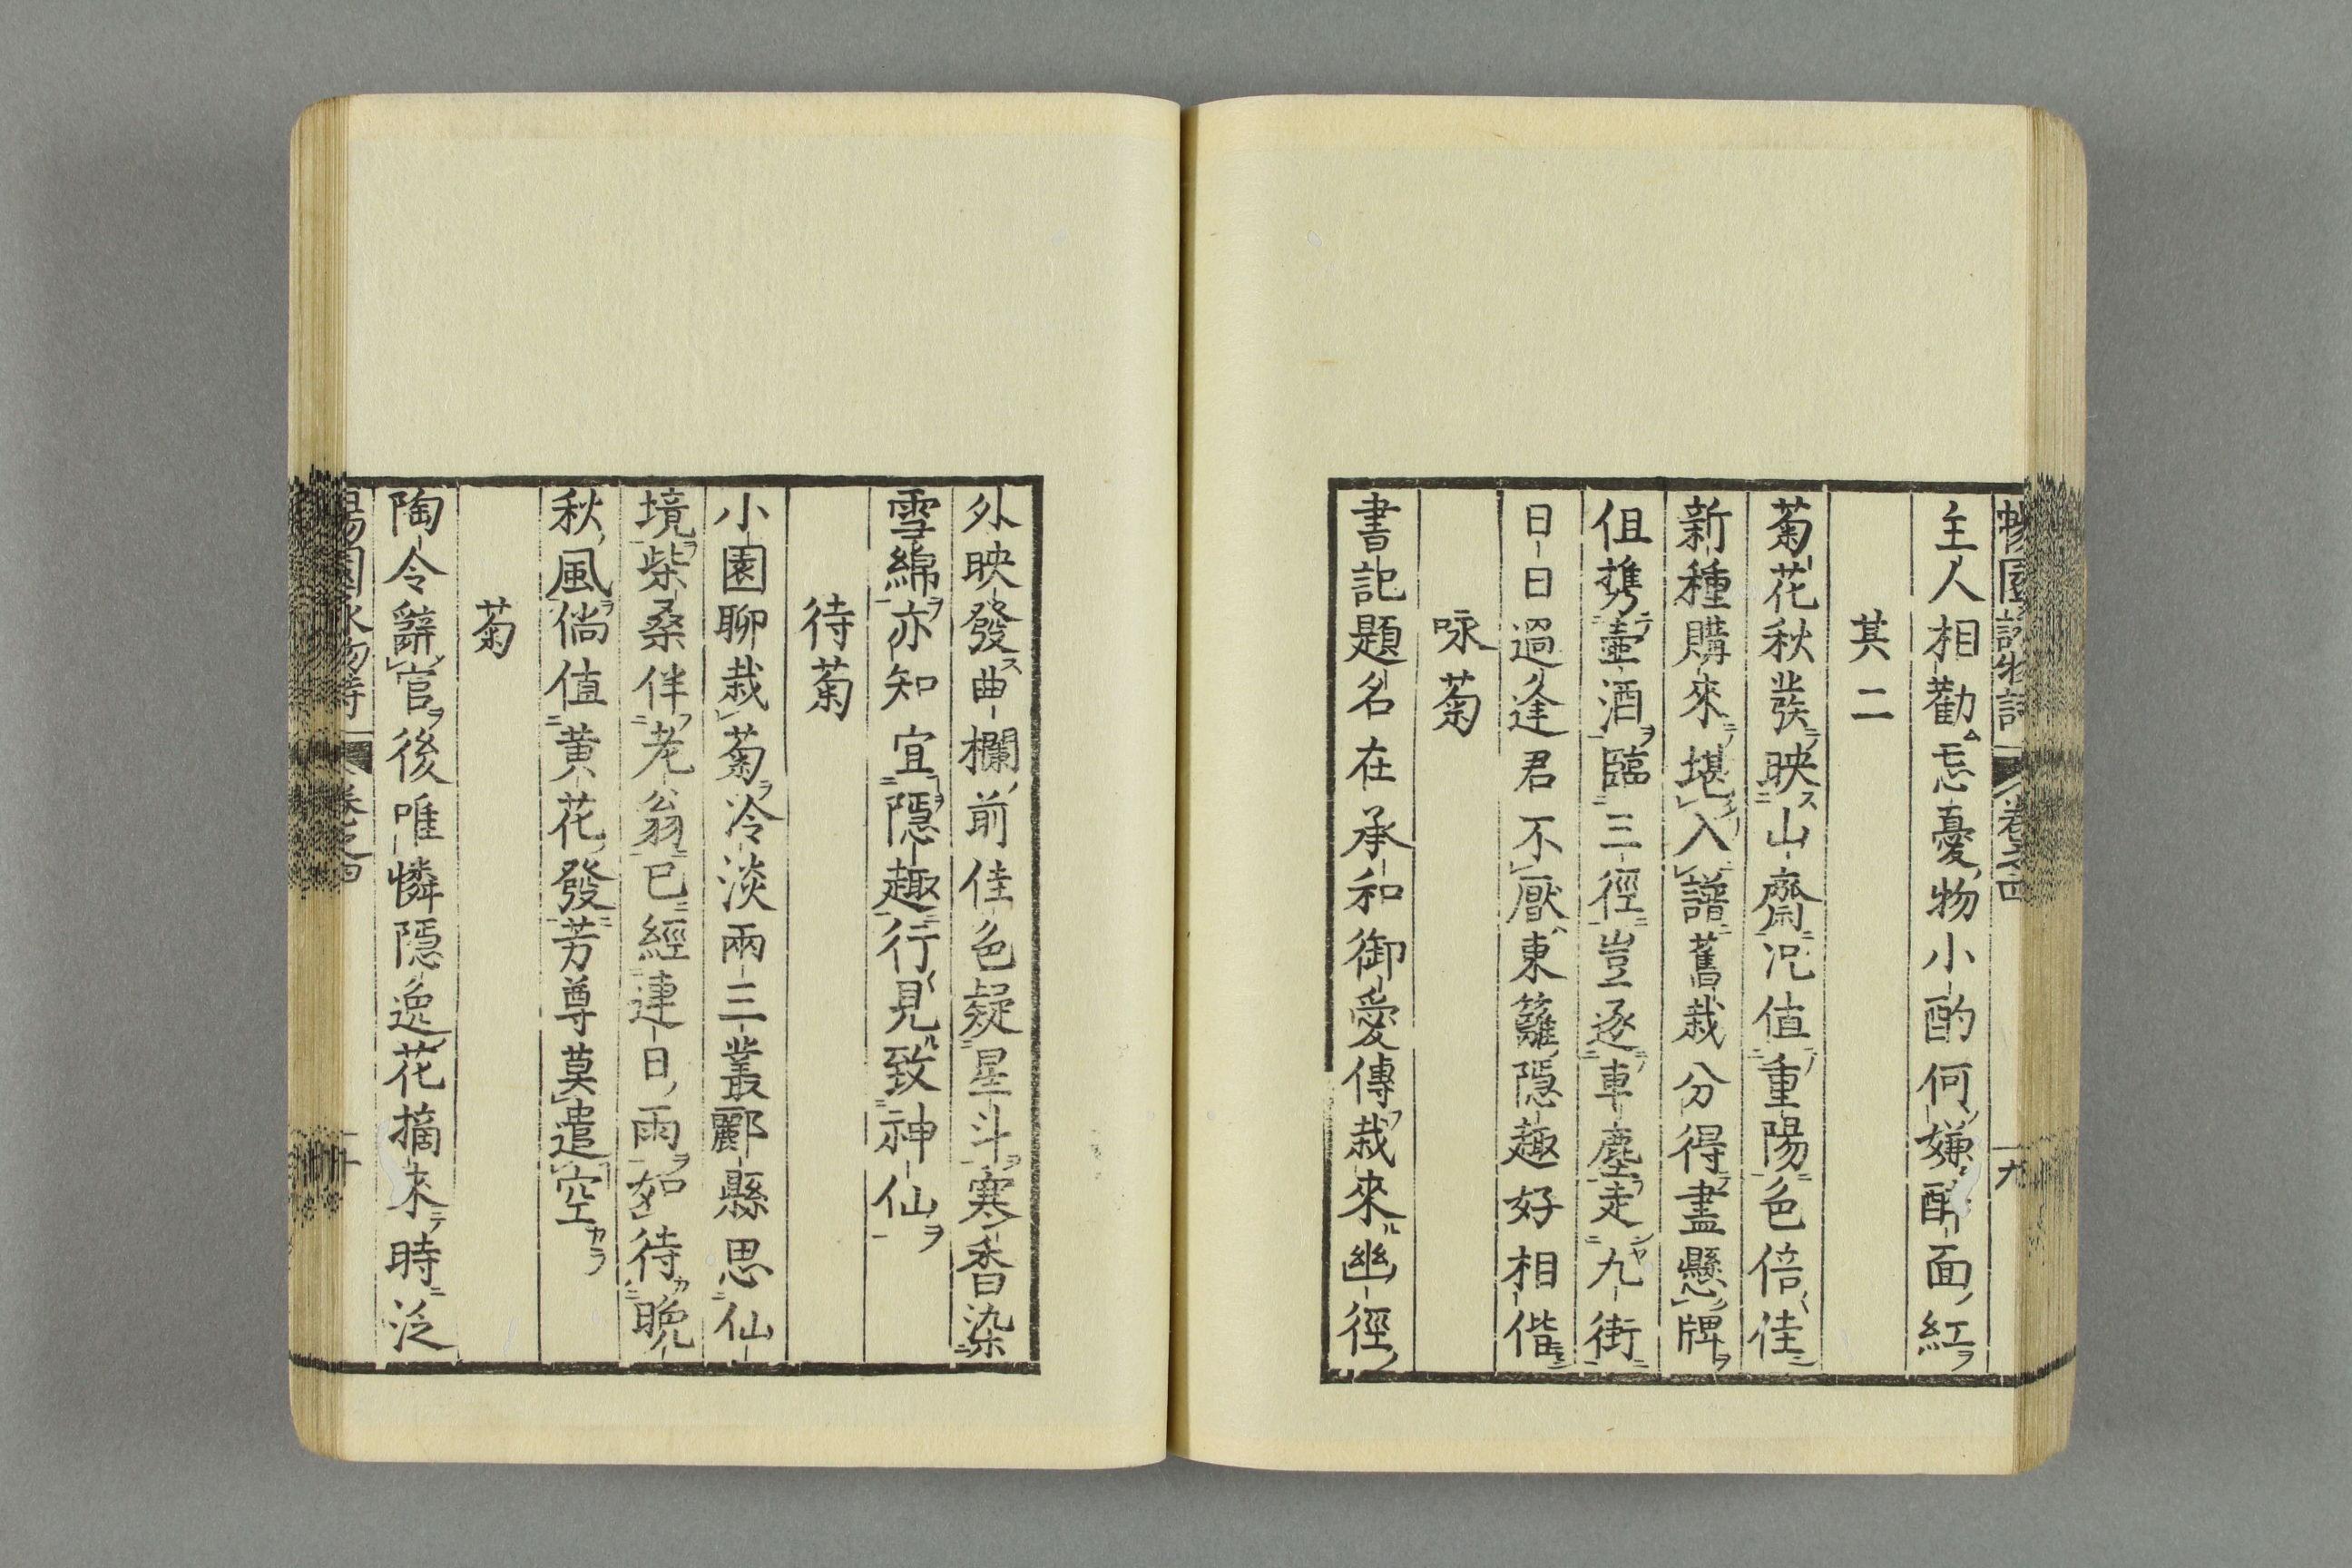 主人相勸忘憂物小酌何嫌醉面紅
其二
菊花秋發映山齋况值重陽色倍佳
新種購來堪入譜舊栽分得盡懸牌
伹携壷酒臨三徑豈逐車塵走九街
日日過逢君不厭東籬隱趣好相偕
咏菊
書記題名在承和御愛傳栽來幽徑
外映發曲欄前佳色疑星斗寒香染
雪綿亦知宜隱趣行見致神仙
待菊
小園聊栽菊冷淡兩三叢酈縣思仙
境柴桑伴老翁已經連日雨如待晩
秋風倘值黄花發芳尊莫遣空
菊
陶令辭官後唯憐隱逸花摘來時泛